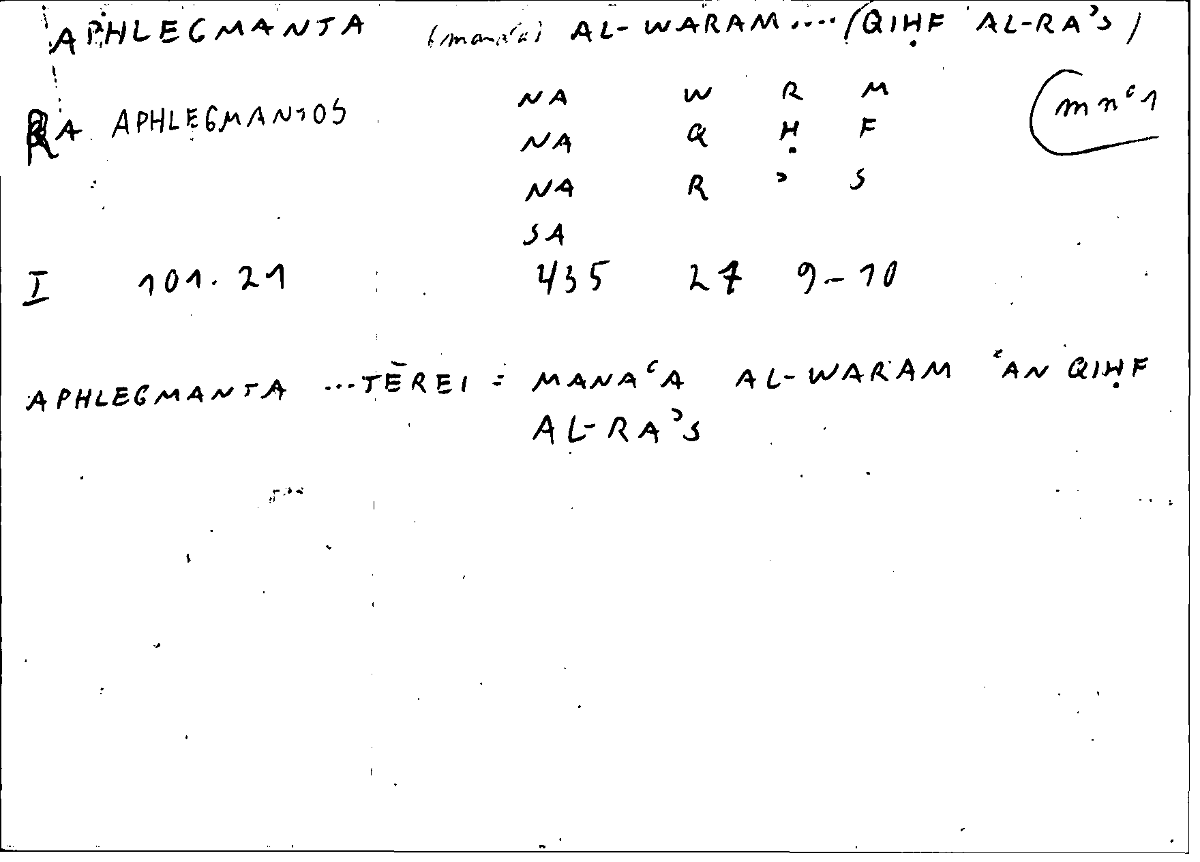 APHLEGMANTA (manaʿa) AL-WARAM.... (QIḤF AL-RAʾS)
RA APHLEGMANTOS NA W R M (mnʿ1
NA Q Ḥ F
NA R ʾ S
SA
I 101.21 435 27 9-10
APHLEGMANTA ...TĒREI = MANAʿA AL-WARAM ʿAN QIḤF
AL-RAʾS